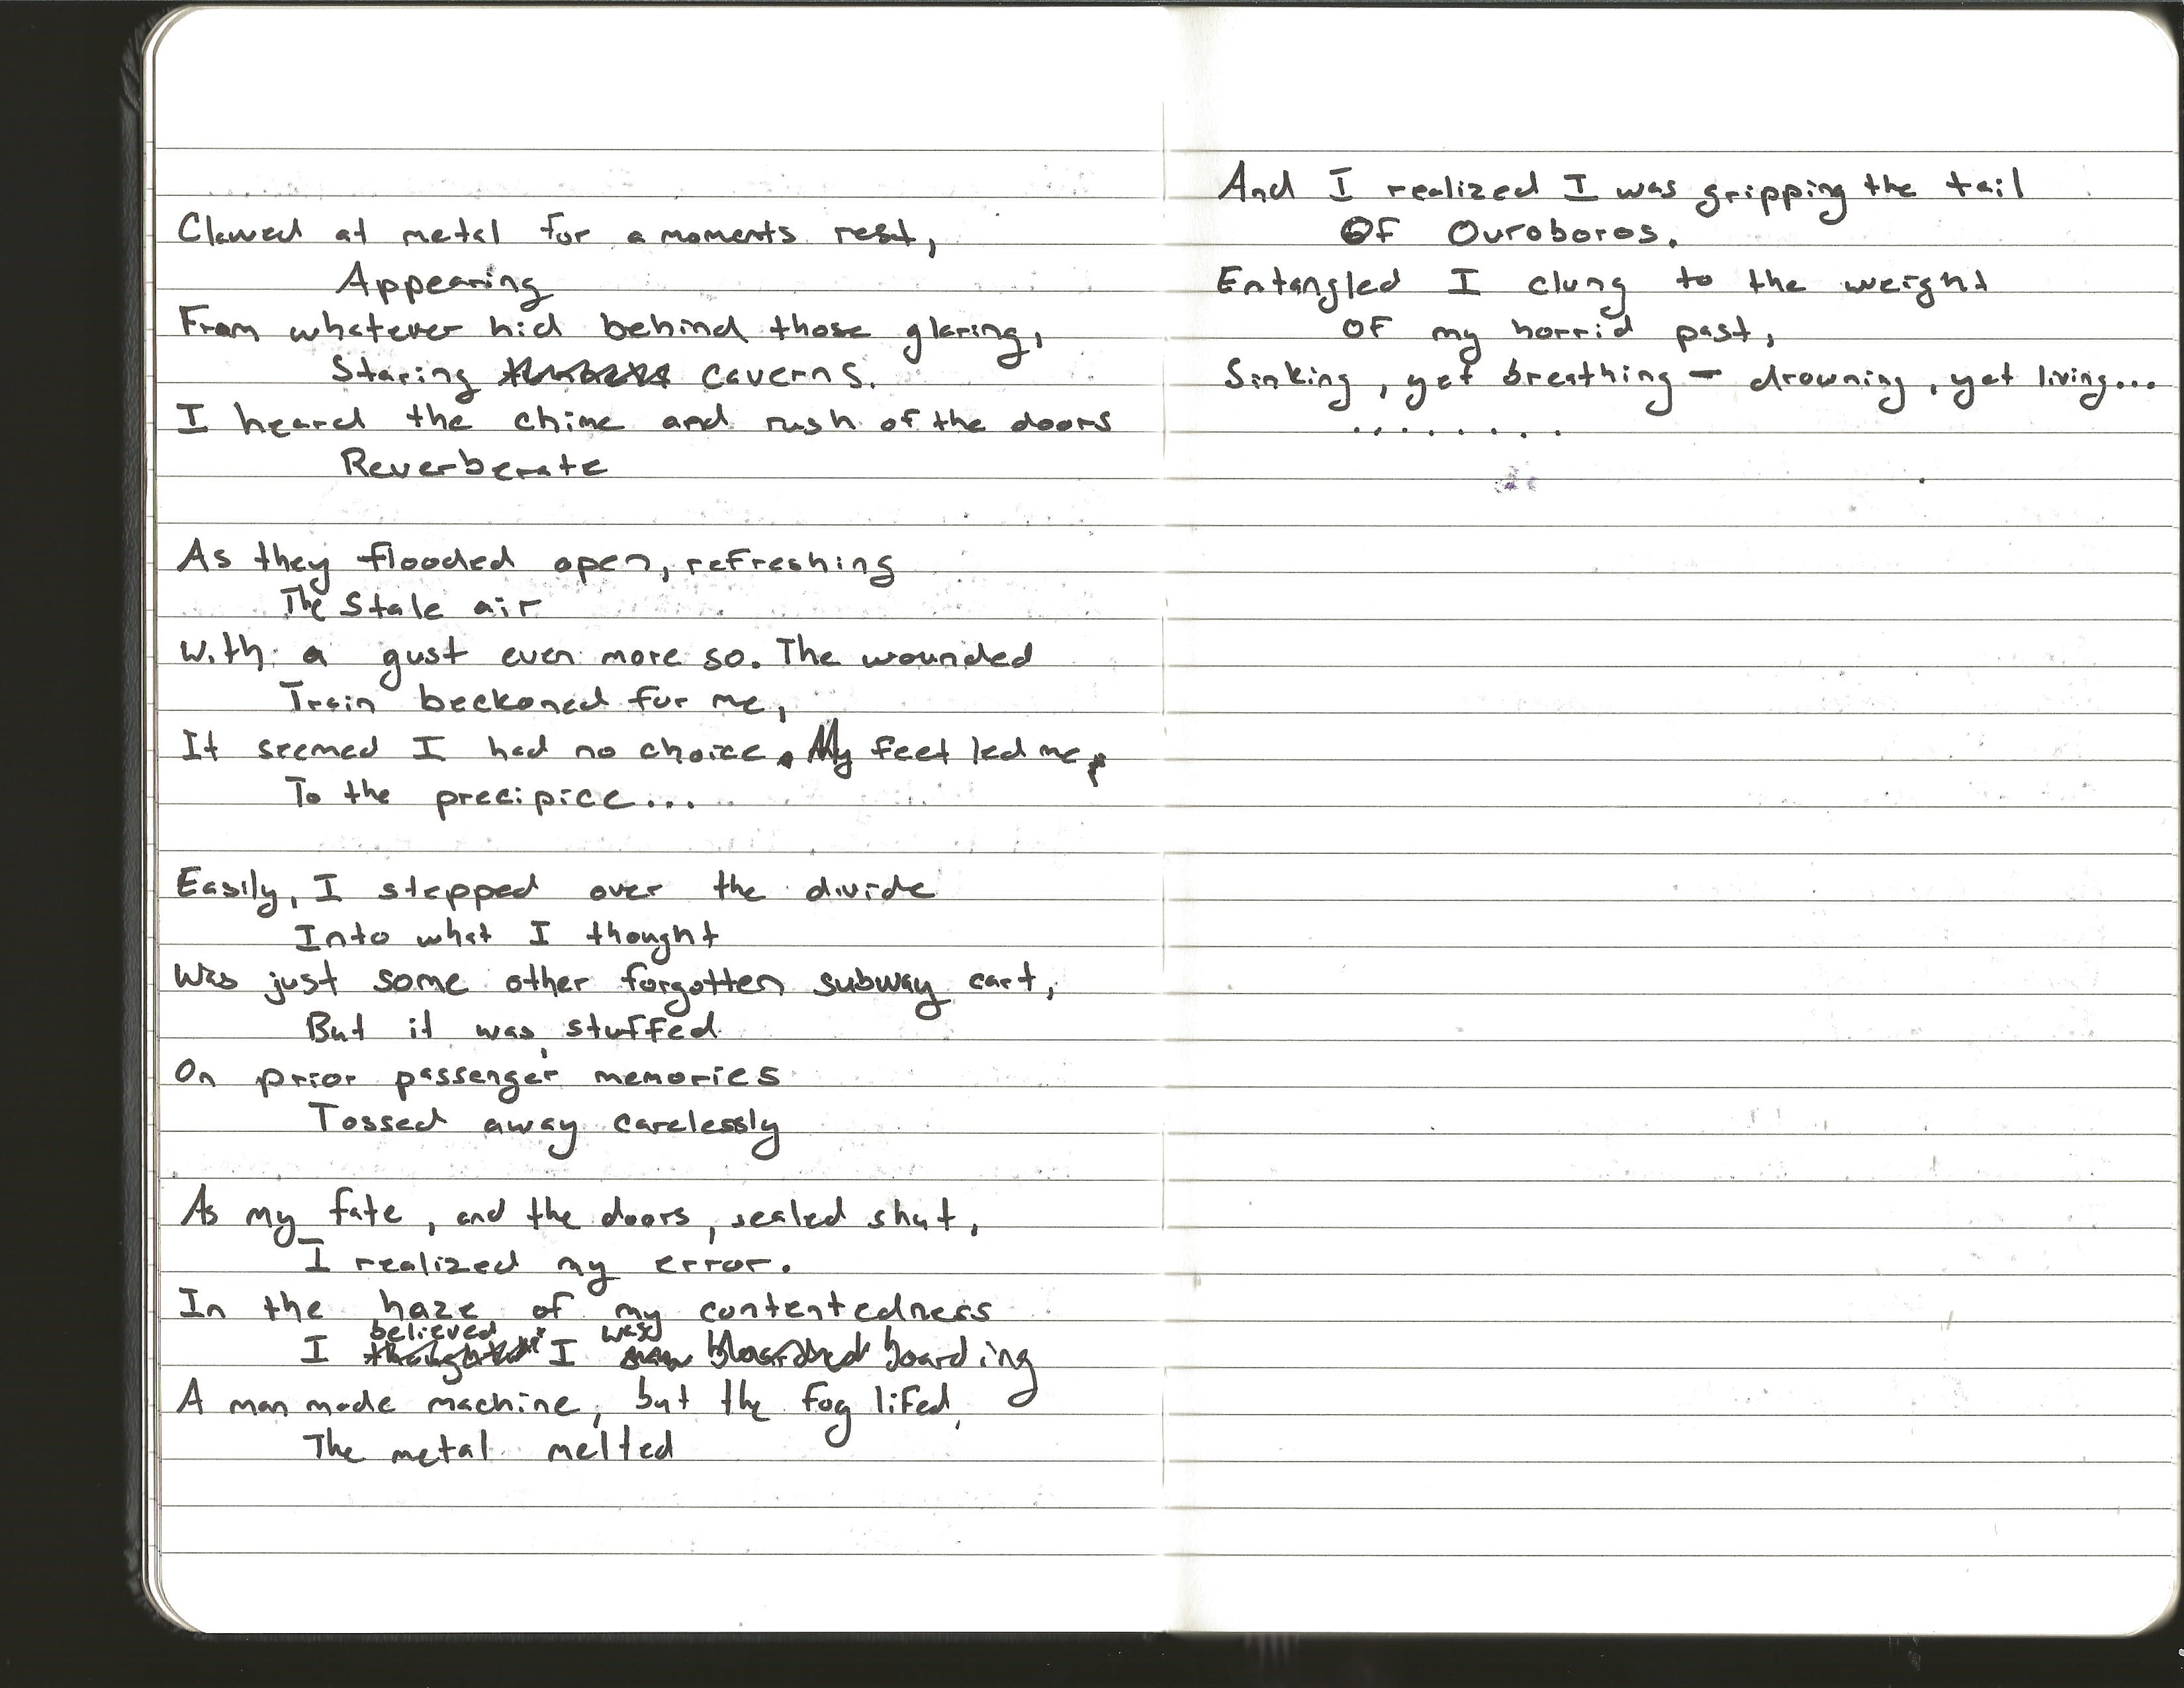 Clawed at metal for a moments rest,
Appearing
From whatever hid behind those glaring,
Staring caverns.
I heard the chime and rush of the doors
Reverberate
As they flooded open, refreshing
The stale air
with a gust even more so. The wounded
Train beckoned for me,
It seemed I had no choice. My feet led me,
To the precipice...
Easily, I stepped over the divide
Into what I thought
Was just some other forgotten subway cart,
But it was stuffed
On prior passenger memories
Tossed away carelessly
As my fate, and the doors, sealed shut,
I realized my error.
In the haze of my contentedness
I believed I was boarding
A man made machine, but the fog lifed,
The metal melted
And I realized I was gripping the tail
Of Ouroboros.
Entangled I clung to the weight
Of my horrid past,
Sinking, yet breathing - drowning, yet living...
.........